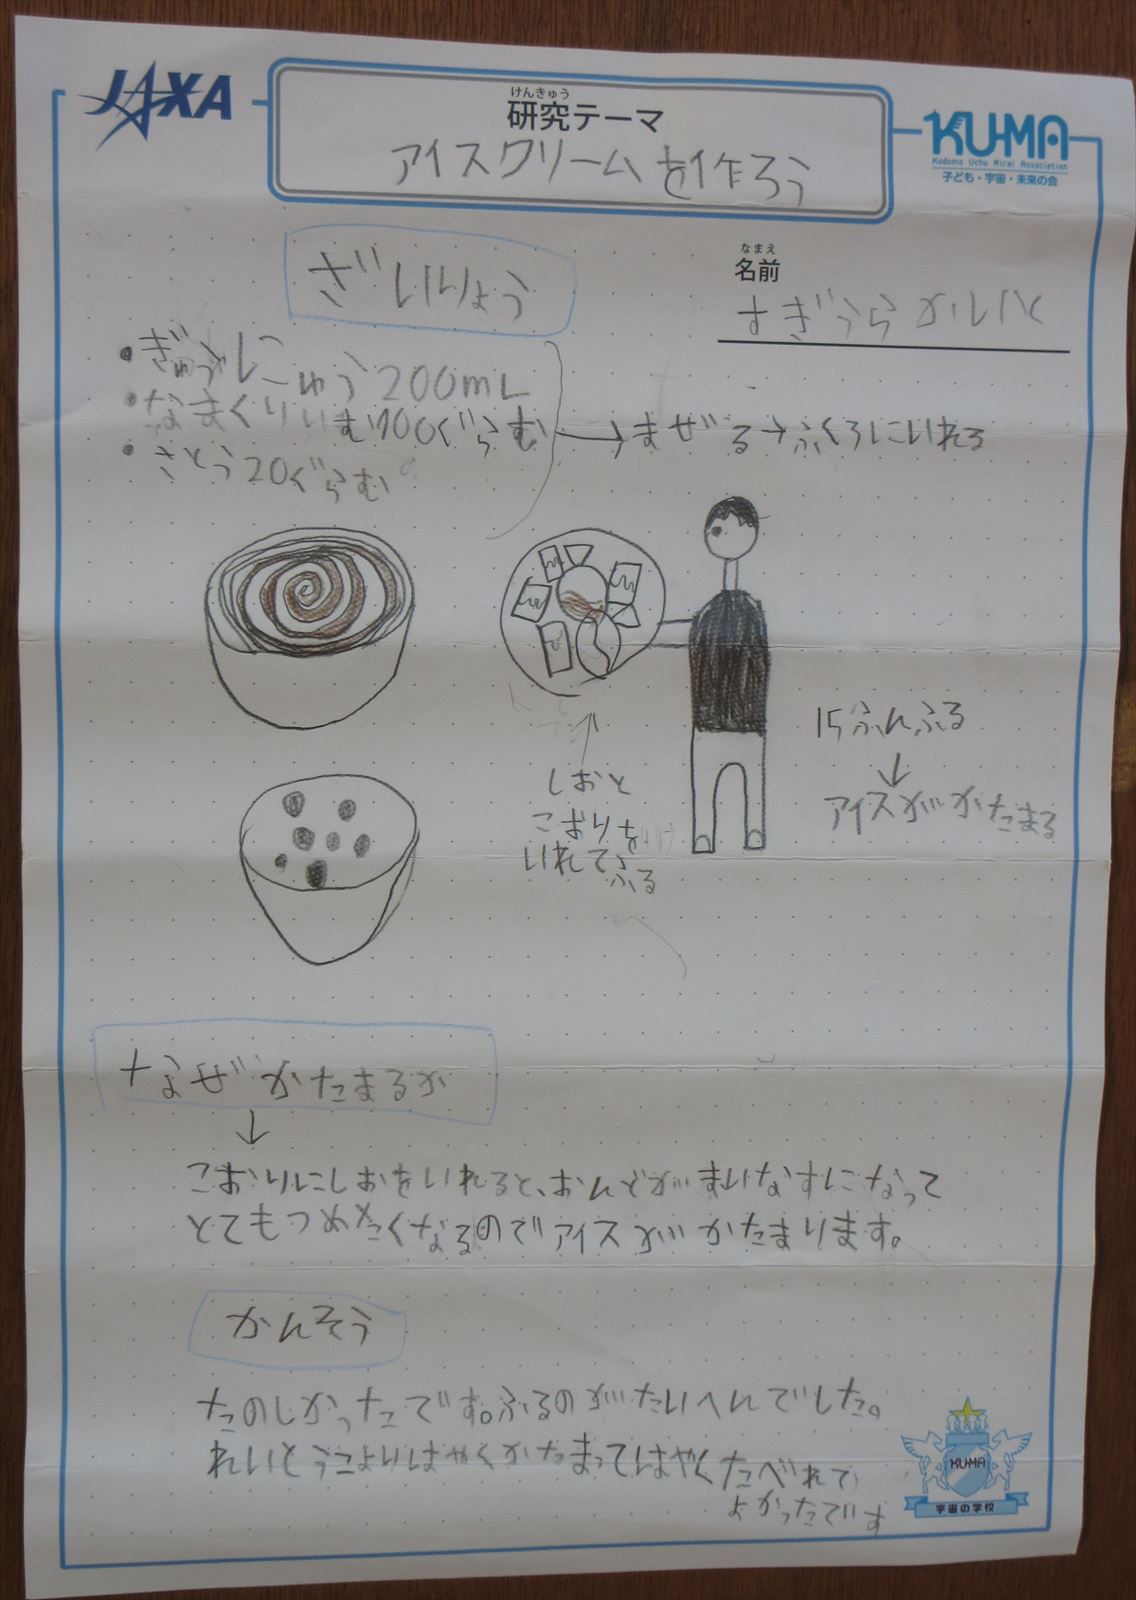 JAXA
けんきゅう
研究テーマ
アイスクリームを作ろう
KU-MA
Kodomo Uchu Mirai Association
子ども・宇宙・未来の会
ざいりょう
なまえ
名前
すぎうら
・ぎゅうにゅう200mL
・なまくりいむ100ぐらむ
・さとう20ぐらむ
→まぜる→ふくろにいれる
しおと
こおりを
いれてふる
15ふんふる
↓
アイスがかたまる
なぜかたまるか
↓
こおりにしおをいれると、おんどがまいなすになって
とてもつめたくなるのでアイスがかたまります。
かんそう
たのしかったです。ふるのがたいへんでした。
れいとうこよりはやくかたまってはやくたべれて
よかったです
KU-MA
宇宙の学校